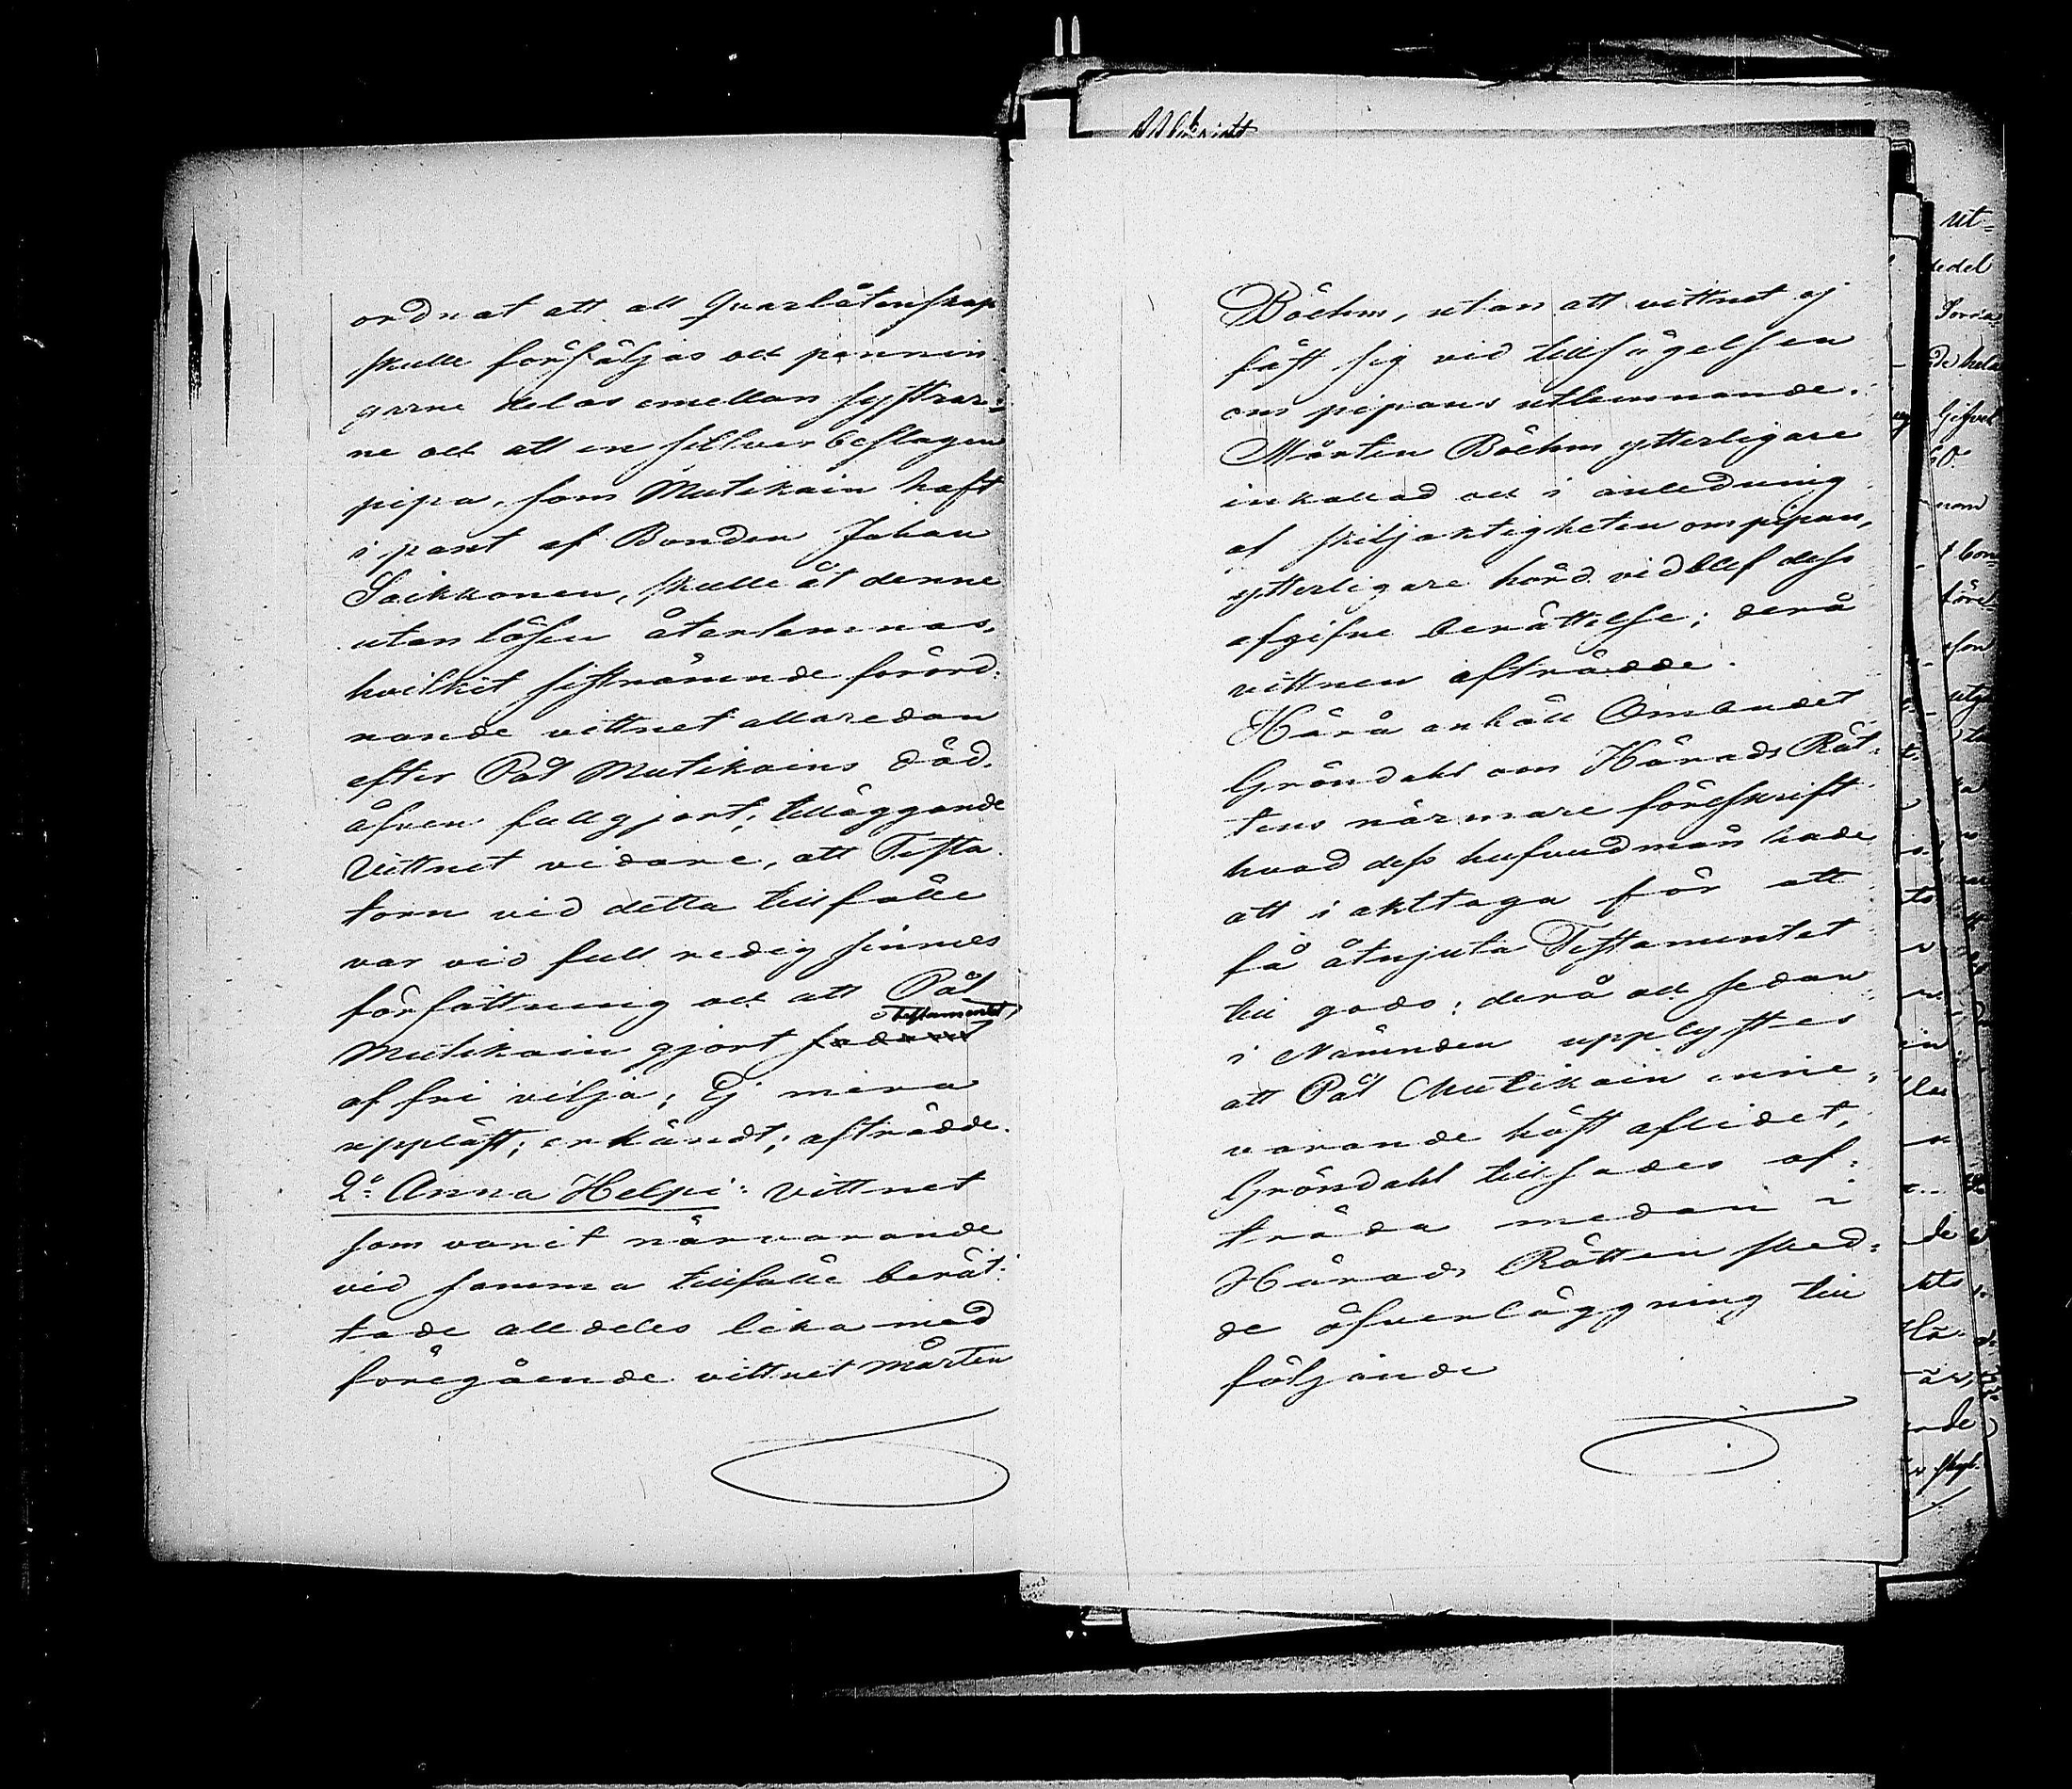 ordnat att all quarlåtenskap
skulle försäljas och pennin
garne delas emellan systrar=
ne och att en sillverbeslagen
pipa, som Mutikain haft
i pant af Bonden Johan
Saikkonen, skulle åt denne
utan lösen återlemnas,
hvilket sistnämnde förord-
nande vittnet allaredan
efter Pål Mutikains död
äfven fullgjort; tilläggande
Vittnet vidare, att Testa
torn vid detta tillfälle
var vid full redig sinnes
författning och att Pål
testamentet
Mutikain gjort
af fri vilja; Ej mera
uppläst; erkändt; afträdde.
2:o Anna Helpi: Vittnet
som varit närvarande
vid samma tillfälle berät-
tade alldeles lika med
föregående vittnet Mårten
Böehm, utan att vittnet ej
fäst sig vid tillsägelsen
om pipans utlemnande.
Mårten Böehm ytterligare
inkallad och i anledning
af skiljaktigheten om pipan,
ytterligare hörd vidblef dess
afgifne berättelse; derå
vittnen afträdde.
Härå anhöll Ombudet
Gröndahl om Härads Rät=
tens närmare föreskrift
hvad dess hufvudmän hade
att i akttaga för att
få åtnjuta Testamentet
till godo; derå och sedan
i Nämnden upplystes
att Pål Mutikain inne-
varande höst aflidet,
Gröndahl tillsades af=
träda medan i
Härads Rätten sked=
de öfverläggning till
följande